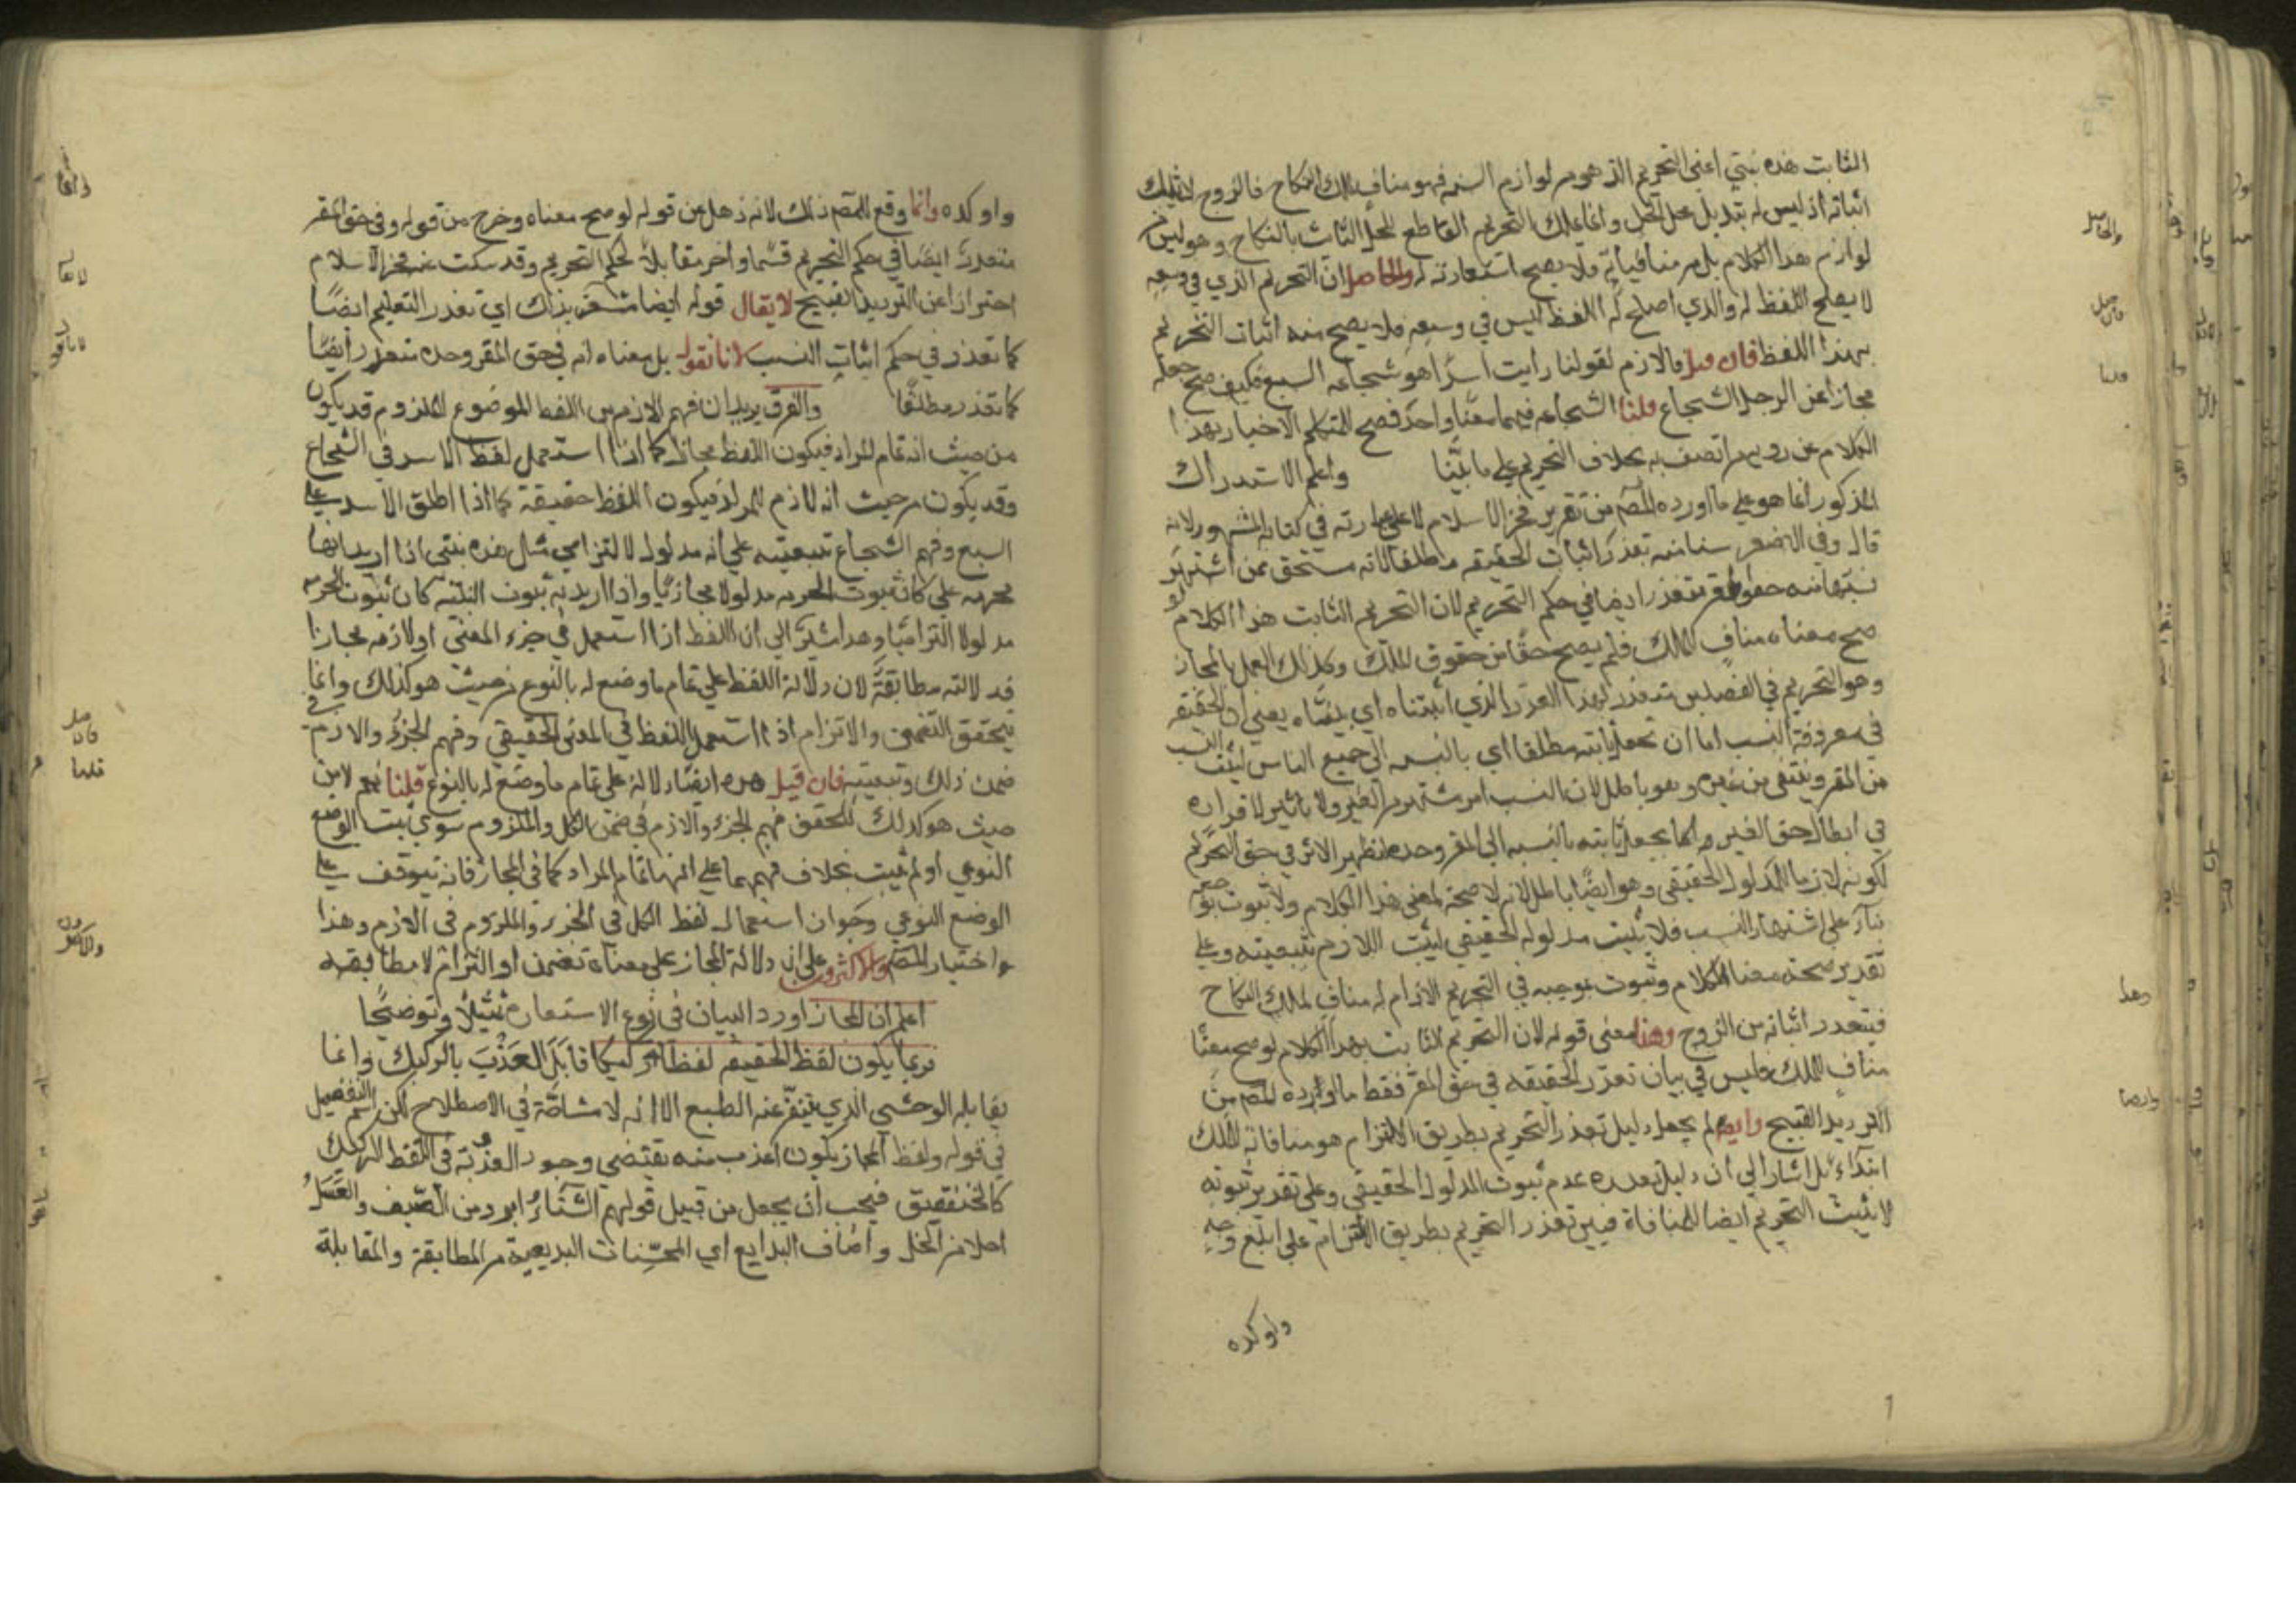 الثابت هذه بنتي اعني التحريم الذي هو من لوازم البنتية فهو مناف لملك النكاح فالزوج لا يملك
اثباته اذ ليس له تبديل محل الحل وانما يملك التحريم القاطع للحل الثابت بالنكاح وهو ليس من
لوازم هذا الكلام بل من منافياته فلا يصح استعارته له والحاصل ان التحريم الذي في وسعه
لا يصلح اللفظ له والذي اصلح له اللفظ ليس في وسعه فلا يصح منه اثبات التحريم
بهذا اللفظ فان قيل فاللازم لقولنا رايت اسدا هو شجاعة السبع فكيف صح جعله
مجازا عن الرجل الشجاع قلنا الشجاعة فيهما معنا واحد فصح للمتكلم الاخبار بهذا
الكلام عن رويه من اتصف به بخلاف التحريم على ما بينا واعلم الاستدراك
المذكور انما هو على ما اورده المصـ من تقرير فخر الاسلام لا على عبارته في كتابه المشهور لانه
قال وفي الاصغر سنا منه تعذر اثبات الحقيقه مطلقا لانه مستحق ممن اشتهر
نسبها منه حق المقر متعذر ايضا في حكم التحريم لان التحريم الثابت هذا الكلام لو
صح معناه مناف للملك فلم يصح حقا من حقوق الملك وكذلك العمل بالمجاز
وهو التحريم في الفصلين متعذر لهذا العذر الذي ابتناه اي بيناه يعني ان الحقيقه
في معروفة النسب اما ان تجعل ثابته مطلقا اي بالنسبه الى جميع الناس ليثبت النسب
من المقر وينتفي من غيره وهو باطل لان النسب امر مشتهر من الغير ولا تاثير لاقراره
في ابطال حق الغير واما يجعل ثابته بالنسبه الى المقر وحده ليظهر الاثر في حق التحريم
لكونه لازما للمدلول الحقيقي وهو ايضا باطل لانه لا صحة لمعنى هذا الكلام ولا ثبوت بموجبه
بناء على اشتهار النسب فلا يثبت مدلوله الحقيقي ليثبت اللازم بتبعيته وعلى
تقدير صحة معنا الكلام وثبوت موجبه في التحريم اللازم له مناف لملك النكاح
فيتعذر اثباته من الزوج وهذا معنى قوله لان التحريم الثابت بهذا الكلام لو صح معنا
مناف للملك فليس في بيان تعذر الحقيقه في حق المقر فقط ما اورده المصـ من
الترديد القبيح وايضا لم يجعل دليل تعذر التحريم بطريق الالتزام هو منافاته للملك
ابتداء بل اشار الى ان دليل تعذره عدم ثبوت المدلول الحقيقي وعلى تقدير ثبوته
لا يثبت التحريم ايضا للمنافاة فيبين تعذر التحريم بطريق الالتزام على ابلغ وجه
واوكده
والحاصل
فان قيل
قلنا
وهذا
وايضا
واوكده وانما وقع للمصـ ذلك لانه ذهل عن قوله لو صح معناه وخرج من قوله وفي حق المقر
متعذر ايضا في حكم التحريم قسما واخر مقابلا لحكم التحريم وقد سكت عنه فخر الاسلام
احترازا عن الترديد القبيح لا يقال قوله ايضا مشعر بذلك اي تعذر التعليم ايضا
كما تعذر في حكم اثبات النسب لانا نقول بل معناه انه في حق المقر وحده متعذر ايضا
كما تعذر مطلقا والفرق يريد ان فهم اللازم من اللفظ الموضوع للملزوم قد يكون
من حيث انه تمام المراد فيكون اللفظ مجازا كما اذا استعمل لفظ الاسد في الشجاع
وقد يكون من حيث انه لازم للمراد فيكون اللفظ حقيقة كما اذا اطلق الاسد على
السبع وفهم الشجاع بتبعيته على انه مدلول لا لتزامي مثل هذه بنتي اذا اريد انها
محرمه علي كان ثبوت الحرمه مدلولا مجازيا واذا اريد به ثبوت البنتيه كان ثبوت الحرمه
مدلولا التزاميا وهذا يشير الى ان اللفظ اذا استعمل في جزء المعنى او لازمه مجازا
فدلالته مطابقة لان دلالة اللفظ على تمام ما وضع له بالنوع من حيث هو كذلك وانما
يتحقق التضمن والالتزام اذا استعمل اللفظ في المعنى الحقيقي وفهم الجزء واللازم في
ضمن ذلك وتبعيته فان قيل هذه ايضا دلالة على تمام ما وضع له بالنوع قلنا نعم لا من
حيث هو كذلك للتحقق فهم الجزء واللازم في ضمن الكل والملزوم سوى ثبت الوضع
النوعي او لم يثبت بخلاف فهمهما على انهما تمام المراد كما في المجاز فانه يتوقف على
الوضع النوعي وجواز استعمال لفظ الكل في الجزء والملزوم في اللازم وهذا
واختيار المصـ والاكثرون على ان دلالة المجاز على معناه تضمن او التزام لا مطابقه
اعلم ان المجاز اورد البيان في نوع الاستعارة تمثيلا وتوضيحا
فربما يكون لفظ الحقيقه لفظا ركيكا قابل العذب بالركيك وانما
يقابله الوحشي الذي يتنفر عنه الطبع الا انه لا مشاحة في الاصطلاح لكن اسم التفضيل
في قوله ولفظ المجاز يكون اعذب منه يقتضي وجود العذبة في اللفظ الركيك
كالخنفقيق فيجب ان يجعل من قبيل قولهم الشتاء ابرد من الصيف والعسل
احلا من الخل واصناف البدايع اي المحسنات البديعية من المطابقة والمقابلة
وانما
لا يقال
لانا نقول
فان قيل
قلنا
والاكثرون